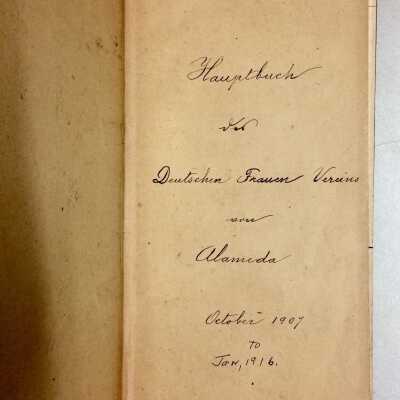 Hauptbuch
des
Deutschen Frauen Vereins
von
Alameda
October 1907
TO
Jan, 1916.